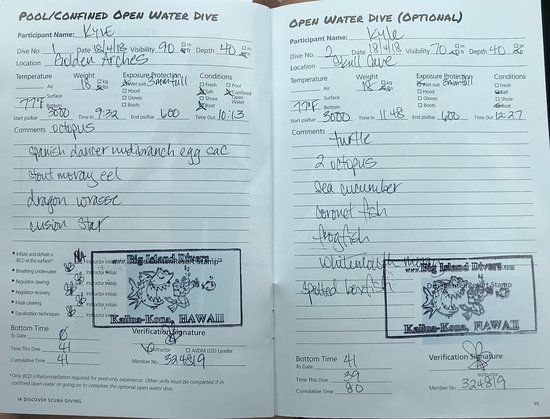 POOL/CONFINED OPEN WATER DIVE
Participant Name: Kyle
Dive No. 1 Date 18/4/18 Visibility 90 m ft Depth 40 m ft
Location Golden Arches
Temperature Weight Exposure Protection Conditions
Air 18 kg lbs Wet suit 3mm full Fresh Pool
Surface Hood Salt Confined
77°F Gloves Shore Open
Bottom Boots Boat Water
Start psi/bar 3000 Time In 9:32 End psi/bar 600 Time Out 10:13
Comments octopus
spanish dancer nudibranch egg sac
stout moray eel
dragon wrasse
cusion star
Inflate and deflate a NA
BCD at the surface* Instructor initials
Breathing underwater Instructor initials
Regulator clearing Instructor initials
Regulator recovery Instructor initials
Mask clearing Instructor initials
Equalization techniques Instructor initials
Big Island Divers
Kailua-Kona, HAWAII
Bottom Time Verification Signature
To Date 0
Time This Dive 41 Instructor AI/DM DSD Leader
Cumulative Time 41 Member No. 324819
*Only BCD inflation/deflation required for pool-only experience. Other skills must be completed if in
confined open water or going on to complete the optional open water dive.
14 DISCOVER SCUBA DIVING
OPEN WATER DIVE (OPTIONAL)
Participant Name: Kyle
Dive No. 2 Date 18/4/18 Visibility 70 m ft Depth 40 m ft
Location Skull Cave
Temperature Weight Exposure Protection Conditions
Air 18 kg lbs Wet suit 3mm full Fresh
Surface Hood Salt
77°F Gloves Shore
Bottom Boots Boat
Start psi/bar 3000 Time In 11:48 End psi/bar 600 Time Out 12:27
Comments turtle
2 octopus
sea cucumber
coronet fish
frogfish
whitemouth
spotted boxfish
Big Island Divers
Kailua-Kona, HAWAII
Bottom Time 41 Verification Signature
To Date
Time This Dive 39 Instructor
Cumulative Time 80 Member No. 324819
15